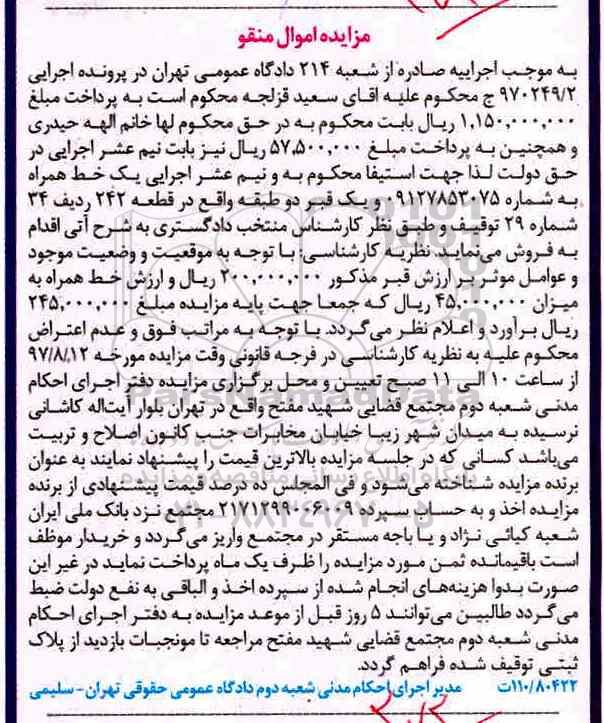 مزایده اموال منقو
به موجب اجراییه صادره از شعبه ۲۱۴ دادگاه عمومی تهران در پرونده اجرایی
۹۷۰۲۴۹/۲ ج محکوم علیه اقای سعید قزلجه محکوم است به پرداخت مبلغ
۱,۱۵۰,۰۰۰,۰۰۰ ریال بابت محکوم به در حق محکوم لها خانم الهه حیدری
و همچنین به پرداخت مبلغ ۵۷,۵۰۰,۰۰۰ ریال نیز بابت نیم عشر اجرایی در
حق دولت لذا جهت استیفا محکوم به و نیم عشر اجرایی یک خط همراه
به شماره ۰۹۱۲۷۸۵۳۰۷۵ و یک قبر دو طبقه واقع در قطعه ۲۴۲ ردیف ۳۴
شماره ۲۹ توقیف و طبق نظر کارشناس منتخب دادگستری به شرح آتی اقدام
به فروش می‌نماید. نظریه کارشناسی: با توجه به موقعیت و وضعیت موجود
و عوامل موثر بر ارزش قبر مذکور ۲۰۰,۰۰۰,۰۰۰ ریال و ارزش خط همراه به
میزان ۴۵,۰۰۰,۰۰۰ ریال که جمعا جهت پایه مزایده مبلغ ۲۴۵,۰۰۰,۰۰۰
ریال برآورد و اعلام نظر می‌گردد. با توجه به مراتب فوق و عدم اعتراض
محکوم علیه به نظریه کارشناسی در فرجه قانونی وقت مزایده مورخه ۹۷/۸/۱۲
از ساعت ۱۰ الی ۱۱ صبح تعیین و محل برگزاری مزایده دفتر اجرای احکام
مدنی شعبه دوم مجتمع قضایی شهید مفتح واقع در تهران بلوار آیت‌اله کاشانی
نرسیده به میدان شهر زیبا خیابان مخابرات جنب کانون اصلاح و تربیت
می‌باشد کسانی که در جلسه مزایده بالاترین قیمت را پیشنهاد نمایند به عنوان
برنده مزایده شناخته می‌شود و فی المجلس ده درصد قیمت پیشنهادی از برنده
مزایده اخذ و به حساب سپرده ۲۱۷۱۲۹۹۰۰۶۰۰۹ مجتمع نزد بانک ملی ایران
شعبه کیائی نژاد و یا باجه مستقر در مجتمع واریز می‌گردد و خریدار موظف
است باقیمانده ثمن مورد مزایده را ظرف یک ماه پرداخت نماید در غیر این
صورت بدوا هزینه‌های انجام شده از سپرده اخذ و الباقی به نفع دولت ضبط
می‌گردد طالبین می‌توانند ۵ روز قبل از موعد مزایده به دفتر اجرای احکام
مدنی شعبه دوم مجتمع قضایی شهید مفتح مراجعه تا مونجبات بازدید از پلاک
ثبتی توقیف شده فراهم گردد.
مدیر اجرای احکام مدنی شعبه دوم دادگاه عمومی حقوقی تهران - سلیمی
۱۱۰/۸۰۴۲۲ت